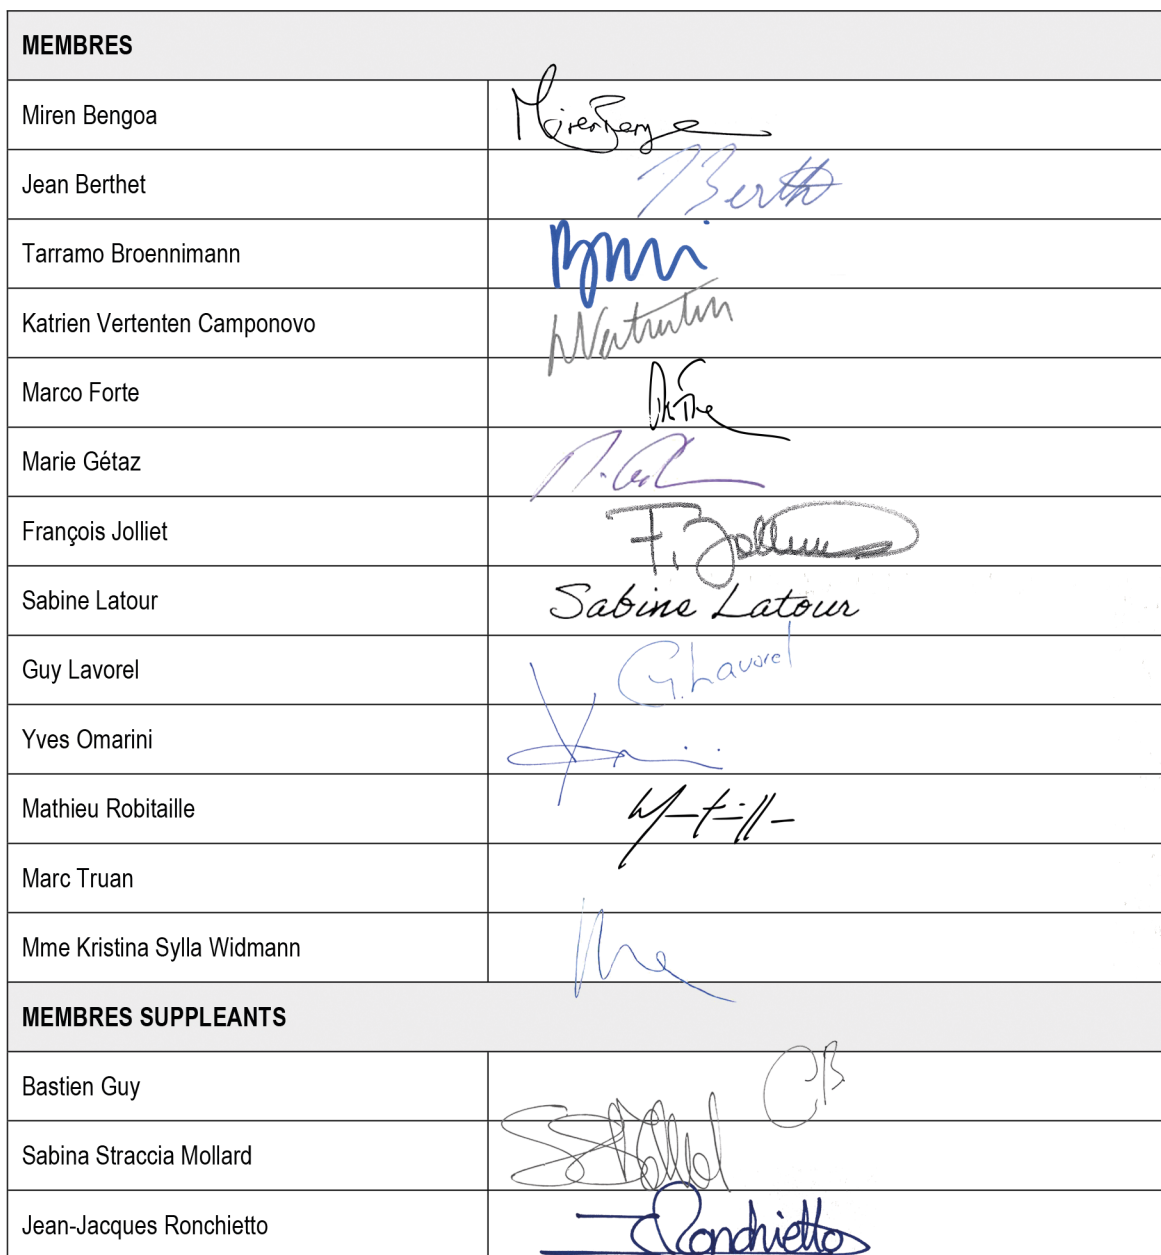 MEMBRES
Miren Bengoa
Jean Berthet
Berth
Tarramo Broennimann
Katrien Vertenten Camponovo
Marco Forte
Marie Gétaz
François Jolliet
F. Jolliet
Sabine Latour Sabine Latour
Guy Lavorel G. Lavorel
Yves Omarini
Mathieu Robitaille
Marc Truan
Mme Kristina Sylla Widmann
MEMBRES SUPPLEANTS
Bastien Guy
Sabina Straccia Mollard
Jean-Jacques Ronchietto Ronchietto